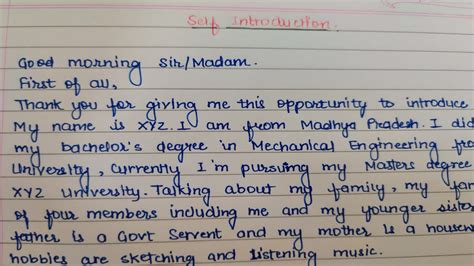 Self Introduction.
Good morning sir/Madam.
First of all,
Thank you for giving me this opportunity to introduce
My name is XYZ. I am from Madhya Pradesh. I did
my bachelor's degree in Mechanical Engineering fro
University, Currently I'm pursuing my Masters degree
XYZ University. Talking about my family, my fam
of four members including me and my younger sister
father is a Govt Servent and my mother is a housew
hobbies are sketching and listening music.